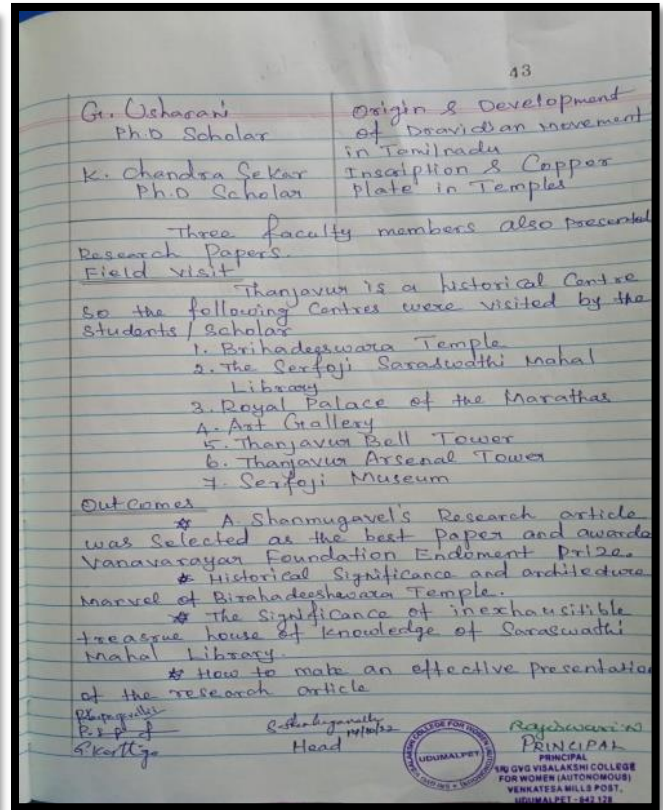 43
G. Usharani
Ph.D Scholar
Origin & Development
of Dravidian movement
in Tamilnadu
K. Chandra Sekar
Ph.D Scholar
Inscription & Copper
Plate in Temples
Three faculty members also presented
Research Papers.
Field visit
Thanjavur is a historical Centre
so the following Centres were visited by the
students / scholar
1. Brihadeeswara Temple
2. The Serfoji Saraswathi Mahal
Library
3. Royal Palace of the Marathas
4. Art Gallery
5. Thanjavur Bell Tower
6. Thanjavur Arsenal Tower
7. Serfoji Museum
Outcomes
* A. Shanmugavel's Research article
was selected as the best paper and awarde
Vanavarayar Foundation Endoment Prize.
* Historical Significance and architecture
Marvel of Birahadeeshwara Temple.
* The Significance of inexhausitible
treasrue house of knowledge of Saraswathi
Mahal Library.
* How to make an effective presentatio
of the research article
Head
Rajeswari N
PRINCIPAL
PRINCIPAL
SRI GVG VISALAKSHI COLLEGE
FOR WOMEN (AUTONOMOUS)
VENKATESA MILLS POST,
UDUMALPET - 642 128
UDUMALPET